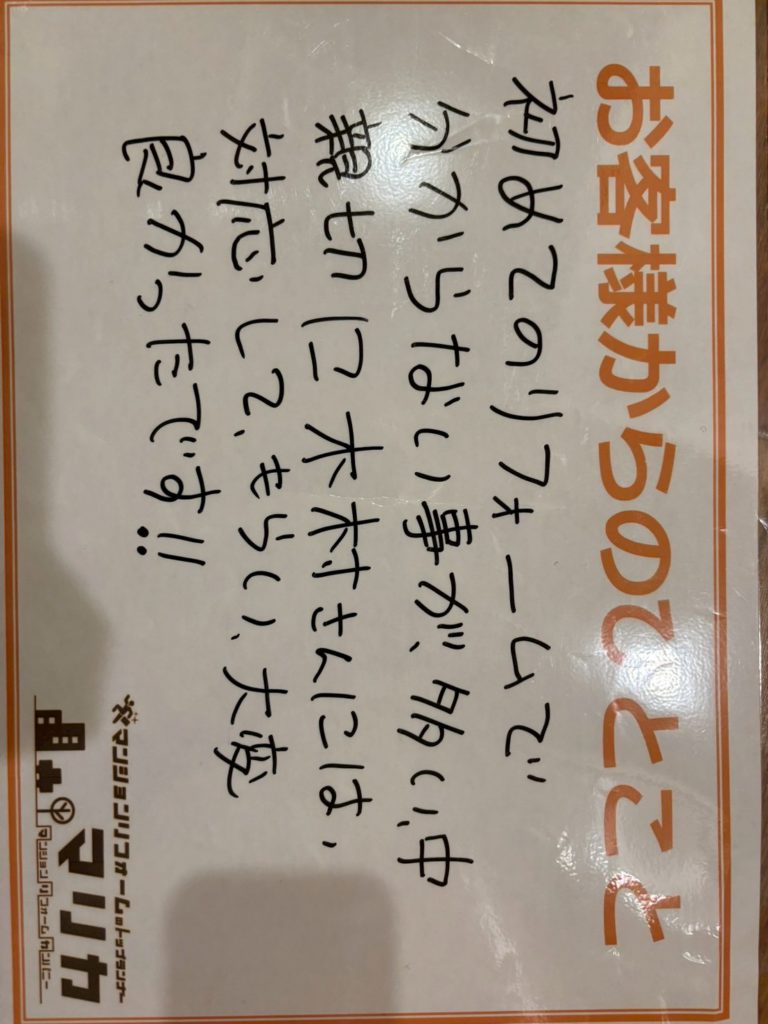 お客様からのひとこと
初めてのリフォームで
分からない事が多い中
親切に木村さんには、
対応して、もらい、大変
良かったです!!
マンションリフォームのトップランナー
マリカ
マンションリフォームカンパニー